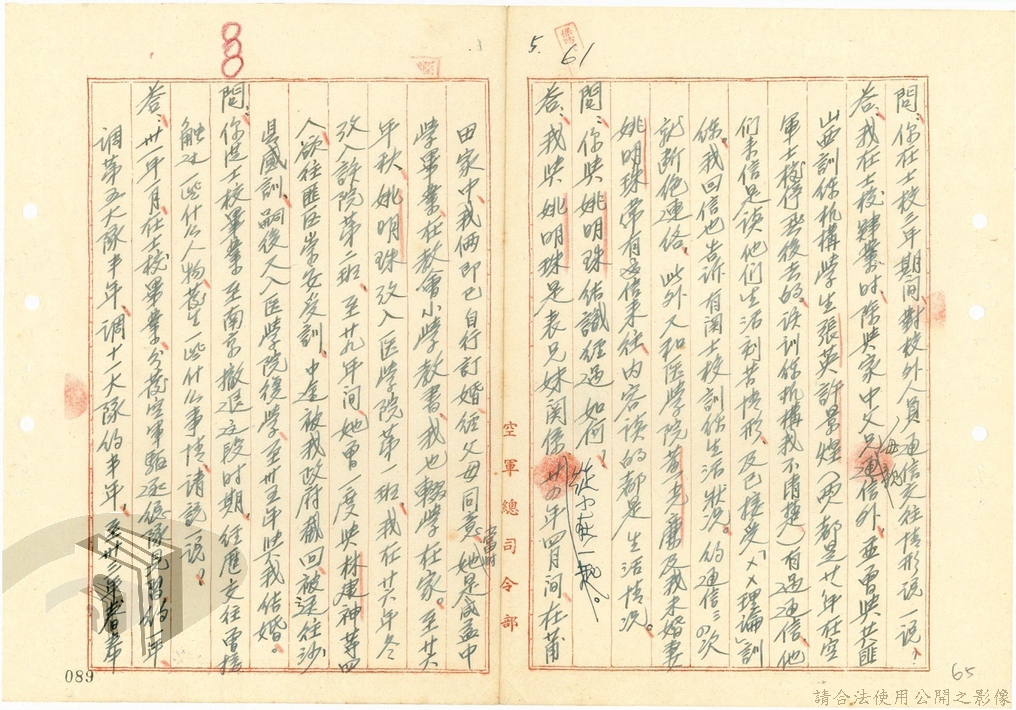 5.
61
問:你在士校三年期間對校外人員通信交往情形說一說、
答:我在士校肄業時除與家中父兄通信外、並曾與共匪
山西訓保机構學生張英許景煌(两都是廿八年在空
軍士校停學後去的、該訓保机構我不清楚)有過通信、他
們来信是谈他們生活刻苦情形、及已接受「××理論」訓
保。我回信也告訴有関士校訓保生活狀況。的通信三の次
就断绝連络。此外又和医學院黃克廉及我未婚妻
姚明珠常有通信来往内容谈的都是生活情況。
問:你與姚明珠结識経過如何、
答:我與姚明珠是表兄妹関係、廿の年四月間在莆
空軍總司令部
田家中我俩即已自行訂婚经父母同意她是咸益中
當時
學畢業、在教會小學教書、我也輟學在家。至廿六
年秋姚明珠攻入医學院第一班、我在廿六年冬
攻入該院第二班、至廿九年間、她曾一度與林建神等四
人欲往匪区崇安受訓、中途被我政府截回被送往沙
县感訓、嗣後又入医學院復學至卅五年與我结婚。
問:你從士校畢業至南京撤退這段時期、经歷交往曾接
触过一些什么人物發生一些什么事情請説一说。
答:卅一年一月在士校畢業、分發空軍驅逐總隊見習約一年
調第五大隊半年、調十一大隊約半年、至卅三年春奉
089
65
請合法使用公開之影像